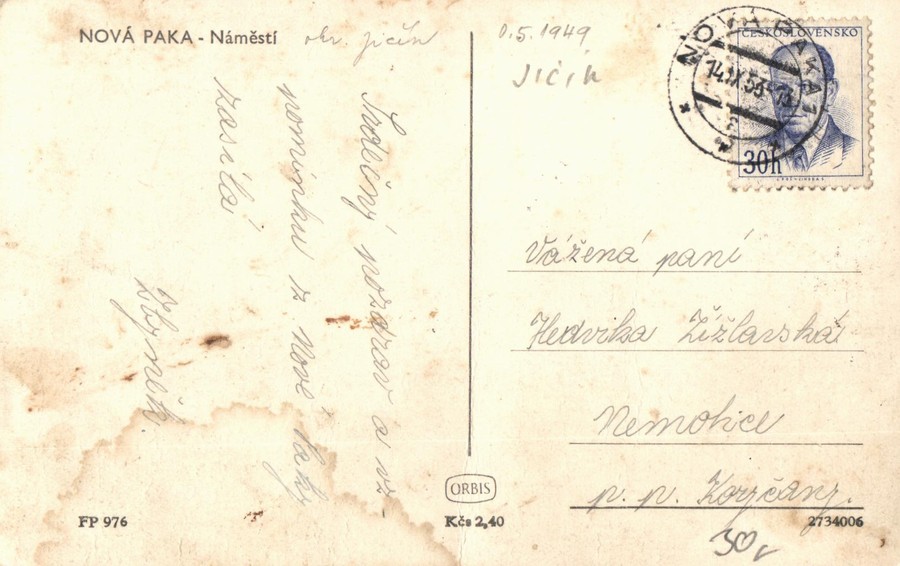 NOVÁ PAKA - Náměstí okr. Jičín
0.5.1949
JIČÍN
NOVÁ PAKA 1
14.IX.53-15
ČESKOSLOVENSKO
30h
Srdečný pozdrav a vz
pomínku z Nové Paky
zasílá
Zbyněk.
Vážená paní
Hedvika Žižlavská
Nemotice
p. p. Koryčany.
ORBIS
FP 976
Kčs 2,40
2734006
30,